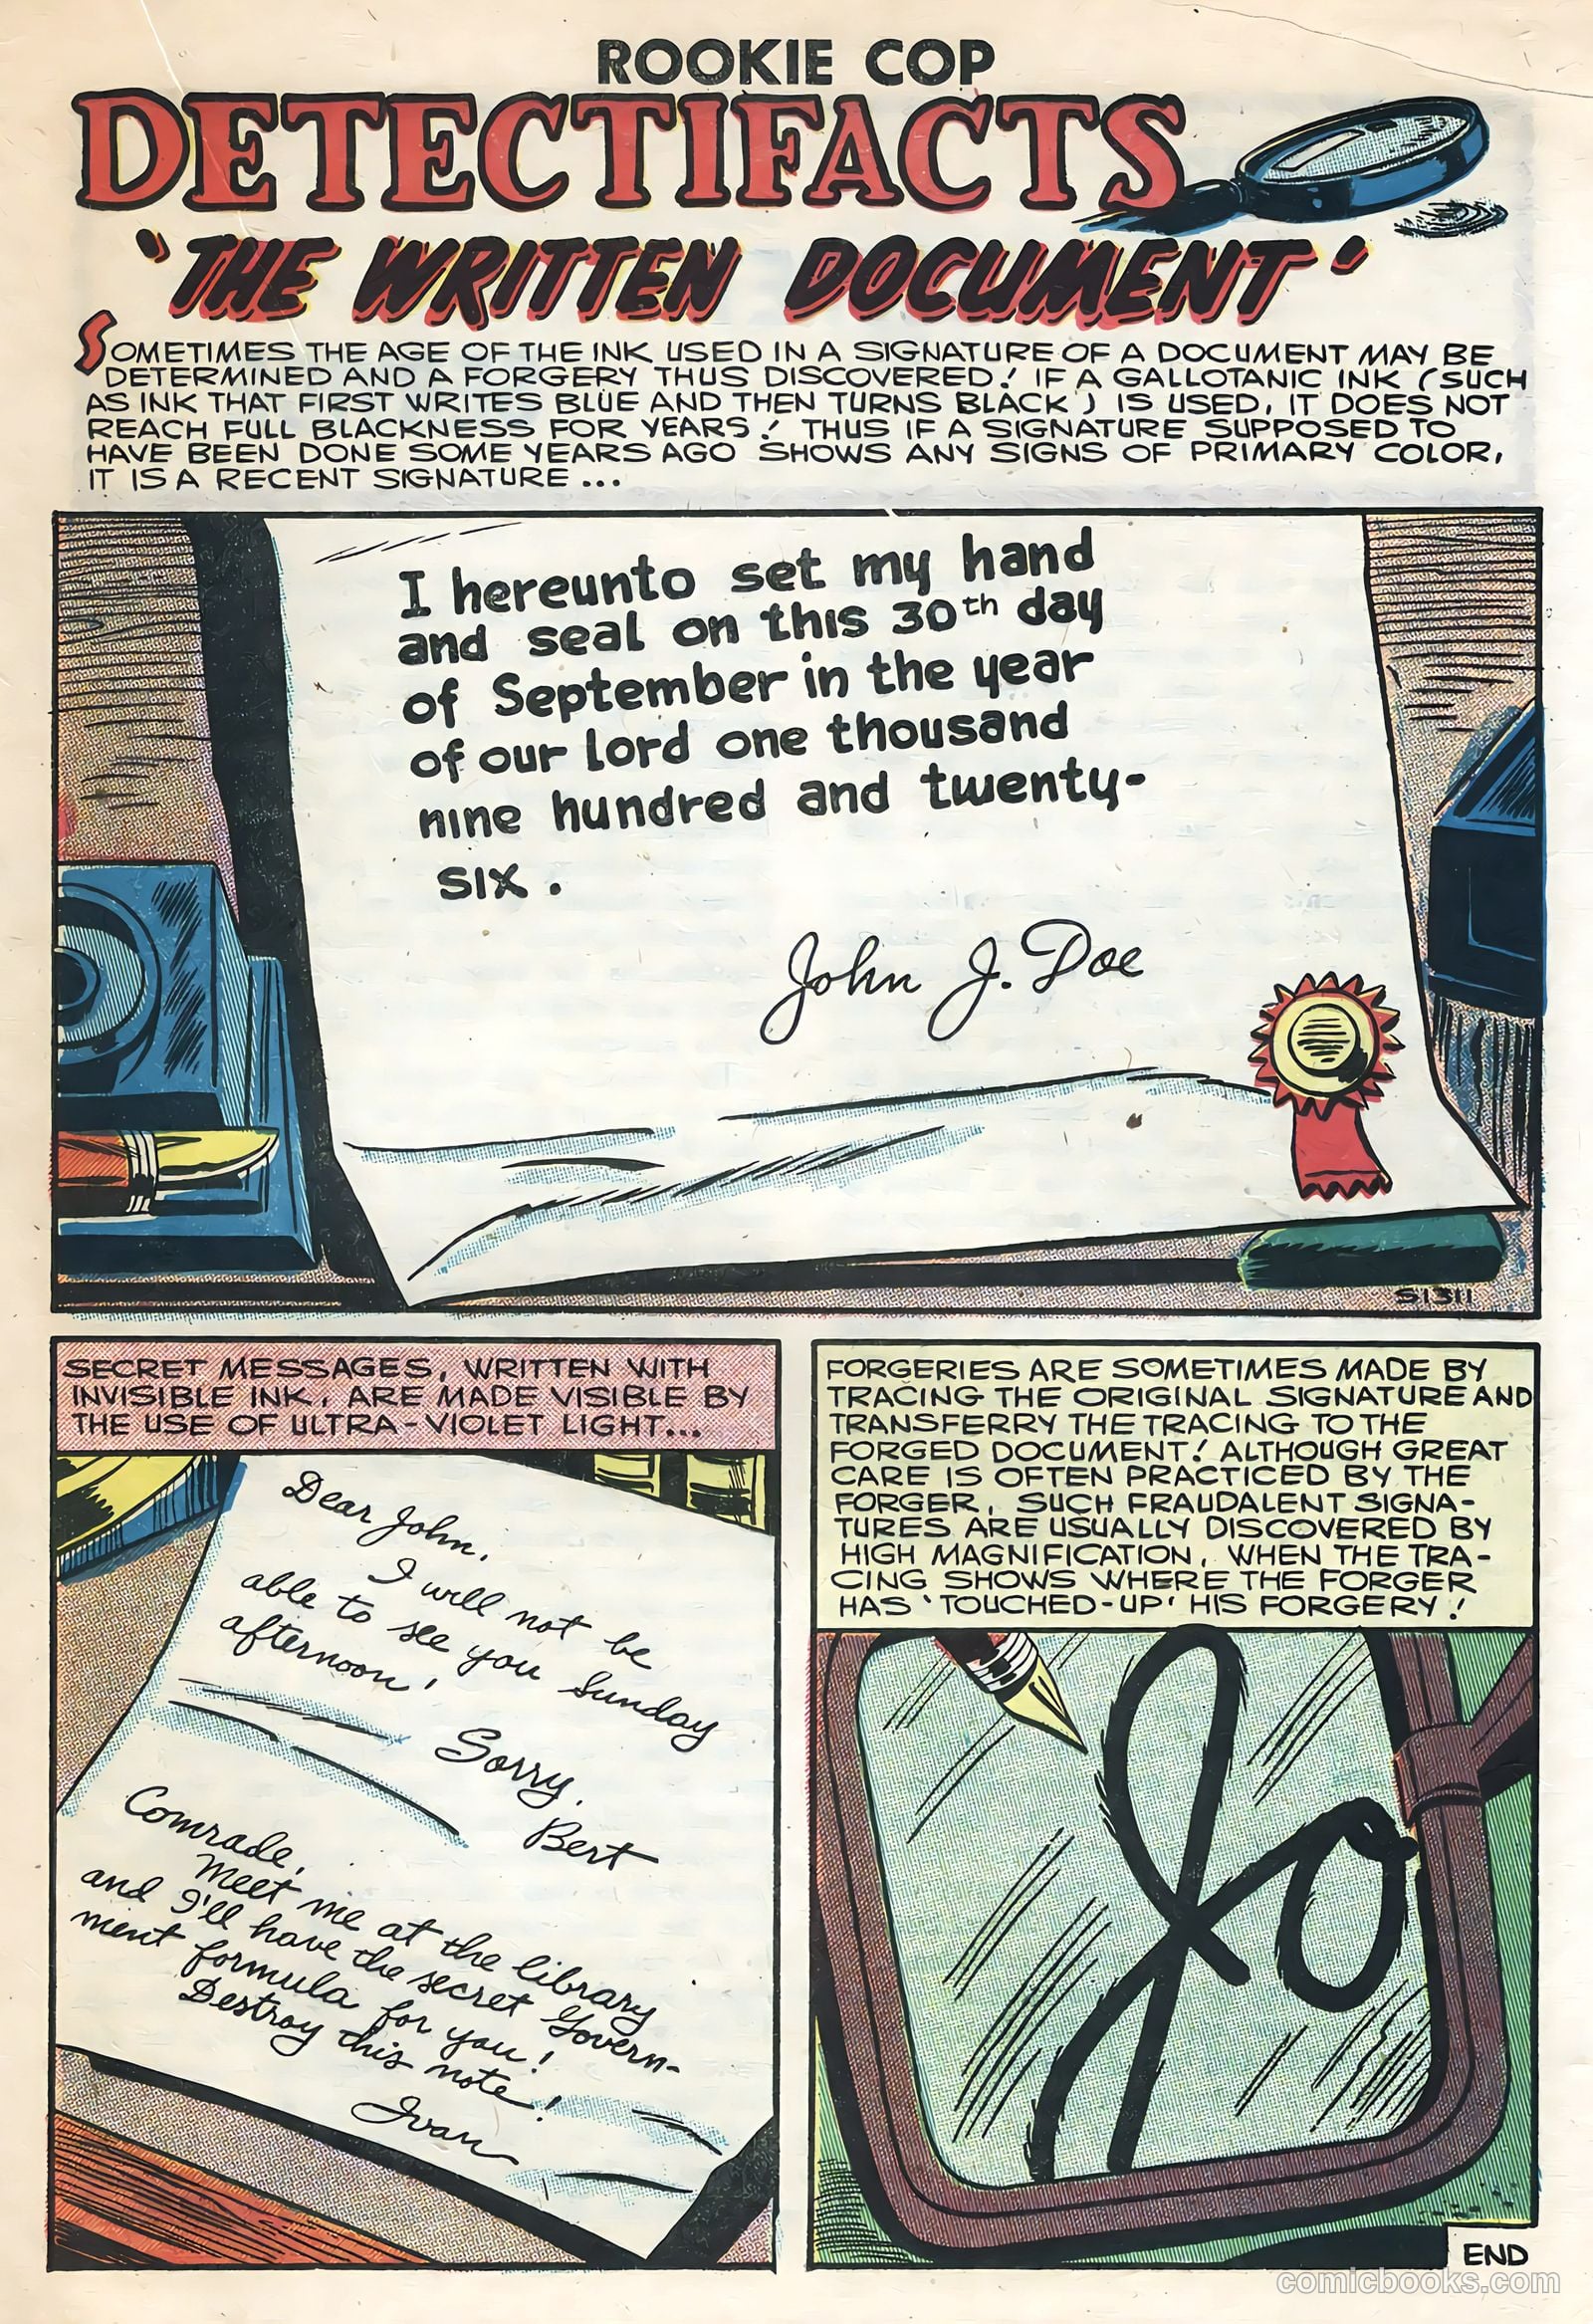 ROOKIE COP
DETECTIFACTS
'THE WRITTEN DOCUMENT'
SOMETIMES THE AGE OF THE INK USED IN A SIGNATURE OF A DOCUMENT MAY BE
DETERMINED AND A FORGERY THUS DISCOVERED! IF A GALLOTANIC INK (SUCH
AS INK THAT FIRST WRITES BLUE AND THEN TURNS BLACK) IS USED, IT DOES NOT
REACH FULL BLACKNESS FOR YEARS! THUS IF A SIGNATURE SUPPOSED TO
HAVE BEEN DONE SOME YEARS AGO SHOWS ANY SIGNS OF PRIMARY COLOR,
IT IS A RECENT SIGNATURE...
I hereunto set my hand
and seal on this 30th day
of September in the year
of our lord one thousand
nine hundred and twenty-
six.
John J. Doe
S1311
SECRET MESSAGES, WRITTEN WITH
INVISIBLE INK, ARE MADE VISIBLE BY
THE USE OF ULTRA-VIOLET LIGHT...
Dear John,
I will not be
able to see you Sunday
afternoon!
Sorry,
Bert
Comrade,
Meet me at the library
and I'll have the secret Govern-
ment formula for you!
Destroy this note!
Ivan
FORGERIES ARE SOMETIMES MADE BY
TRACING THE ORIGINAL SIGNATURE AND
TRANSFERRY THE TRACING TO THE
FORGED DOCUMENT! ALTHOUGH GREAT
CARE IS OFTEN PRACTICED BY THE
FORGER, SUCH FRAUDALENT SIGNA-
TURES ARE USUALLY DISCOVERED BY
HIGH MAGNIFICATION, WHEN THE TRA-
CING SHOWS WHERE THE FORGER
HAS 'TOUCHED-UP' HIS FORGERY!
Jo
END
comicbooks.com